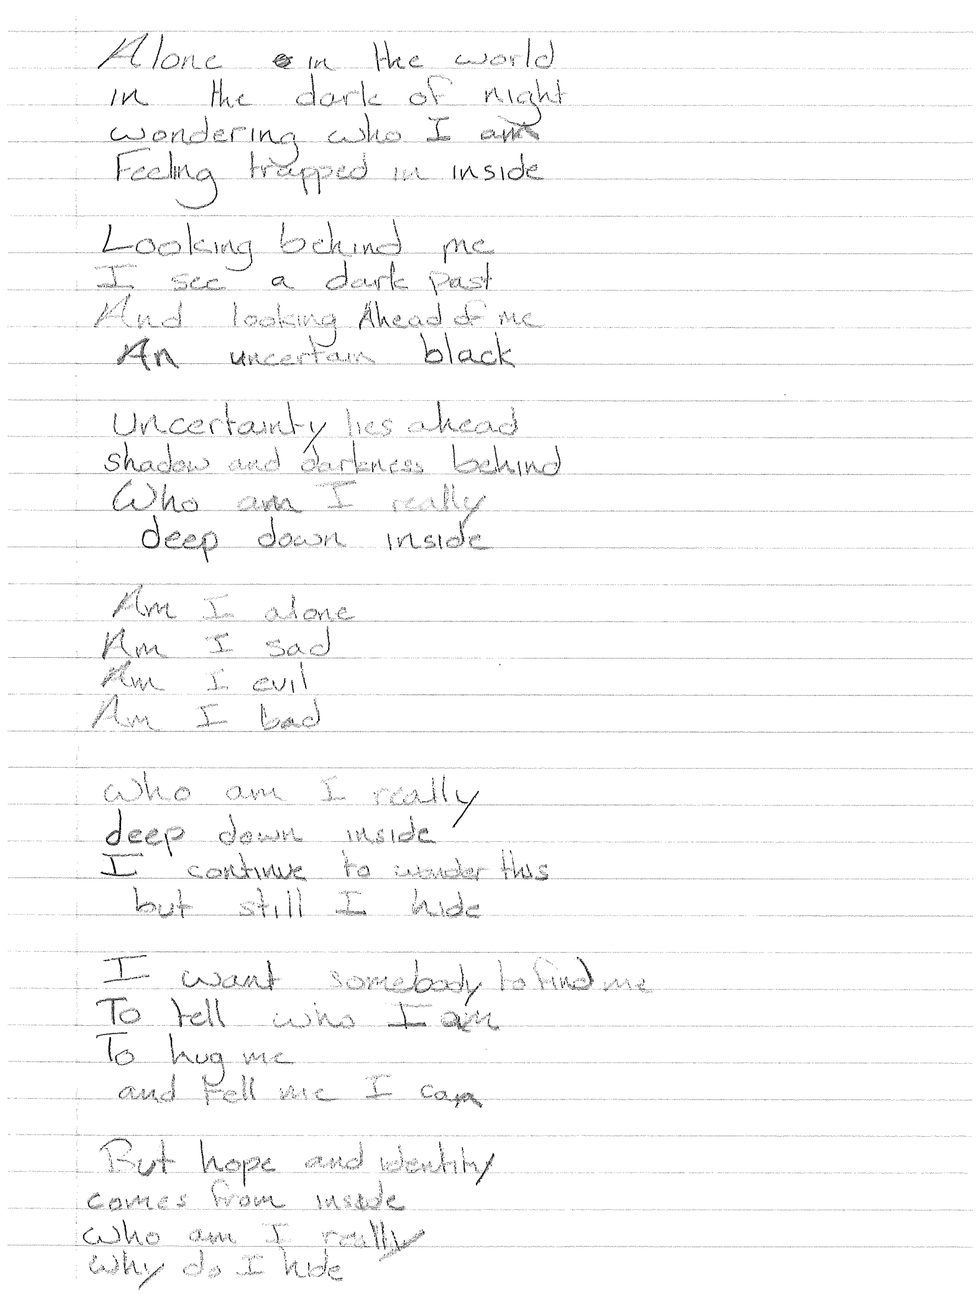 Alone in the world
in the dark of night
wondering who I am
Feeling trapped in inside
Looking behind me
I see a dark past
And looking Ahead of me
An uncertain black
Uncertainty lies ahead
shadow and darkness behind
Who am I really
deep down inside
Am I alone
Am I sad
Am I evil
Am I bad
who am I really
deep down inside
I continue to wonder this
but still I hide
I want somebody to find me
To tell who I am
To hug me
and tell me I can
But hope and identity
comes from inside
who am I really
Why do I hide